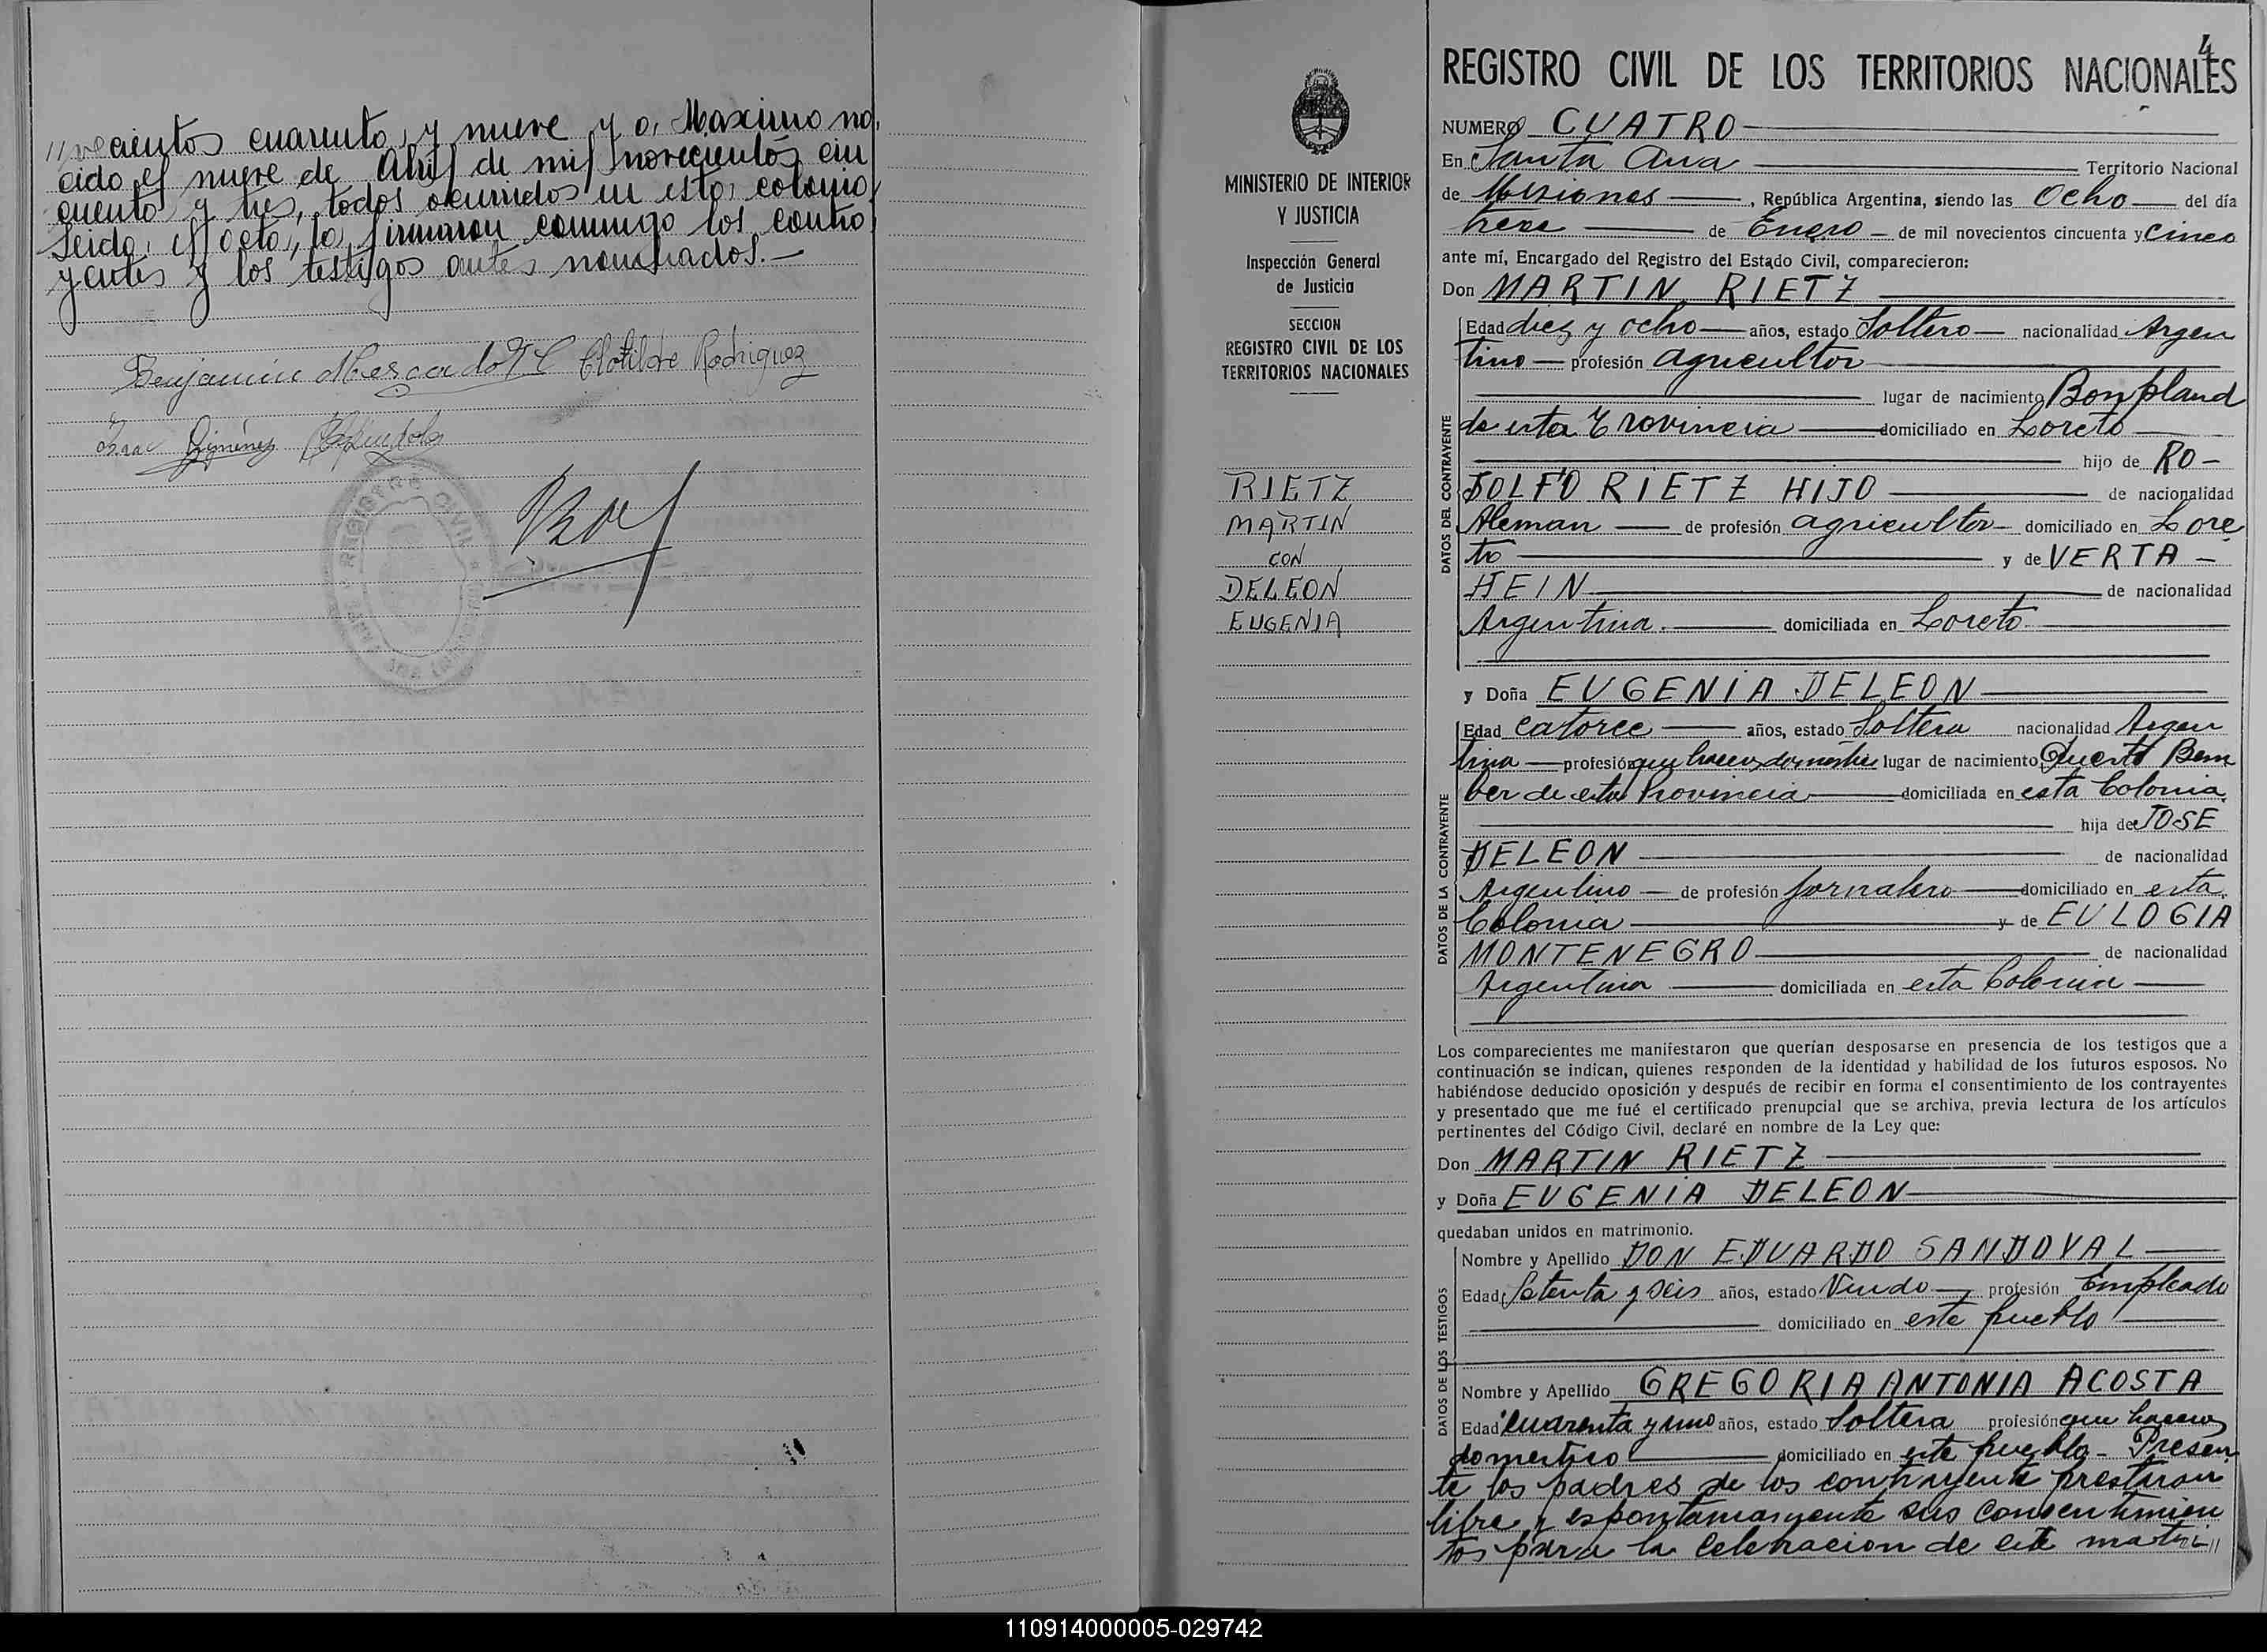 //vecientos cuarenta y nueve y a Maximo na,
cido el nueve de Abril de mil novecientos cin
cuenta y tres, todos ocurridos en esta colonia,
Leida el acta, la firmaron conmigo los contra
yentes y los testigos antes nombrados.—
Benjamin Mercado Clotilde Rodriguez
Gimenez
REGISTRO CIVIL
MINISTERIO DE INTERIOR
Y JUSTICIA
Inspección General
de Justicia
SECCION
REGISTRO CIVIL DE LOS
TERRITORIOS NACIONALES
RIETZ
MARTIN
CON
DELEON
EUGENIA
4
REGISTRO CIVIL DE LOS TERRITORIOS NACIONALES
NUMERO CUATRO
En Santa Ana Territorio Nacional
de Misiones, República Argentina, siendo las Ocho del día
trece de Enero de mil novecientos cincuenta y Cinco
ante mí, Encargado del Registro del Estado Civil, comparecieron:
Don MARTIN RIETZ
DATOS DEL CONTRAYENTE
Edad diez y ocho años, estado Soltero nacionalidad Argen
tino profesión agricultor
lugar de nacimiento Bonpland
de esta Provincia domiciliado en Loreto
hijo de RO-
DOLFO RIETZ HIJO de nacionalidad
Aleman de profesión agricultor domiciliado en Lore
to y de VERTA
HEIN de nacionalidad
Argentina. domiciliada en Loreto
y Doña EUGENIA DELEON
DATOS DE LA CONTRAYENTE
Edad Catorce años, estado Soltera nacionalidad Argen
tina profesión que haceres domesticos lugar de nacimiento Puerto Bem
ber de esta Provincia domiciliada en esta Colonia,
hija de JOSE
DELEON de nacionalidad
Argentino de profesión Jornalero domiciliado en esta
Colonia y de EULOGIA
MONTENEGRO de nacionalidad
Argentina domiciliada en esta Colonia
Los comparecientes me manifestaron que querían desposarse en presencia de los testigos que a
continuación se indican, quienes responden de la identidad y habilidad de los futuros esposos. No
habiéndose deducido oposición y después de recibir en forma el consentimiento de los contrayentes
y presentado que me fué el certificado prenupcial que se archiva, previa lectura de los artículos
pertinentes del Código Civil, declaré en nombre de la Ley que:
Don MARTIN RIETZ
y Doña EUGENIA DELEON
quedaban unidos en matrimonio.
DATOS DE LOS TESTIGOS
Nombre y Apellido DON EDUARDO SANDOVAL
Edad Setenta y seis años, estado Viudo profesión Empleado
domiciliado en este pueblo
Nombre y Apellido GREGORIA ANTONIA ACOSTA
Edad Cuarenta y uno años, estado Soltera profesión que haceres
domestico domiciliado en este pueblo - Presen
te los padres de los contrayente prestaron
libre y espontaneamente sus consentimien
tos para la celebracion de este matri//
110914000005-029742